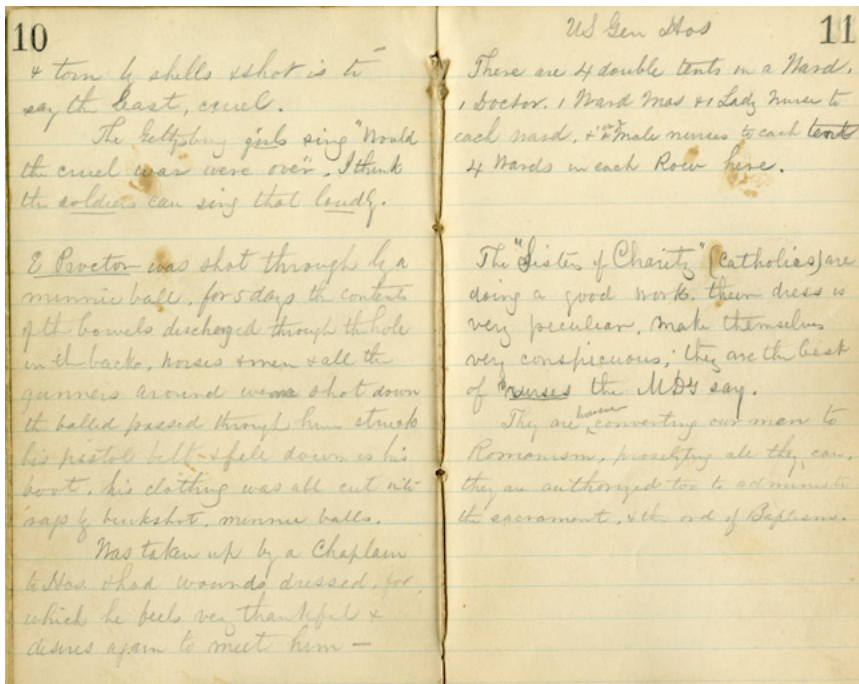 10
& torn by shells & shot is to
say the least, cruel.
The Gettysburg girls sing "Would
the cruel war were over". I think
the soldiers can sing that loudly.
E Proctor was shot through by a
minnie ball, for 5 days the contents
of the bowels discharged through the hole
in the back, horses & men & all the
gunners around were shot down
the balled passed through him struck
his pistol belt & fell down in his
boot, his clothing was all cut into
rags by buckshot, minnie balls.
Was taken up by a Chaplain
to Hos & had wounds dressed, for
which he feels very thankful &
desires again to meet him —
11
US Gen Hos
There are 4 double tents in a Ward,
1 Doctor. 1 Ward Mas & 1 Lady Nurse to
each ward, & male nurses to each tent
4 Wards in each Row here.
The "Sisters of Charity" (Catholics) are
doing a good work. their dress is
very peculiar, make themselves
very conspicuous; they are the best
of nurses the MDs say.
They are however converting our men to
Romanism, proselyting all they can,
they are authorized too to administer
the sacrament, & the ord of Baptism.